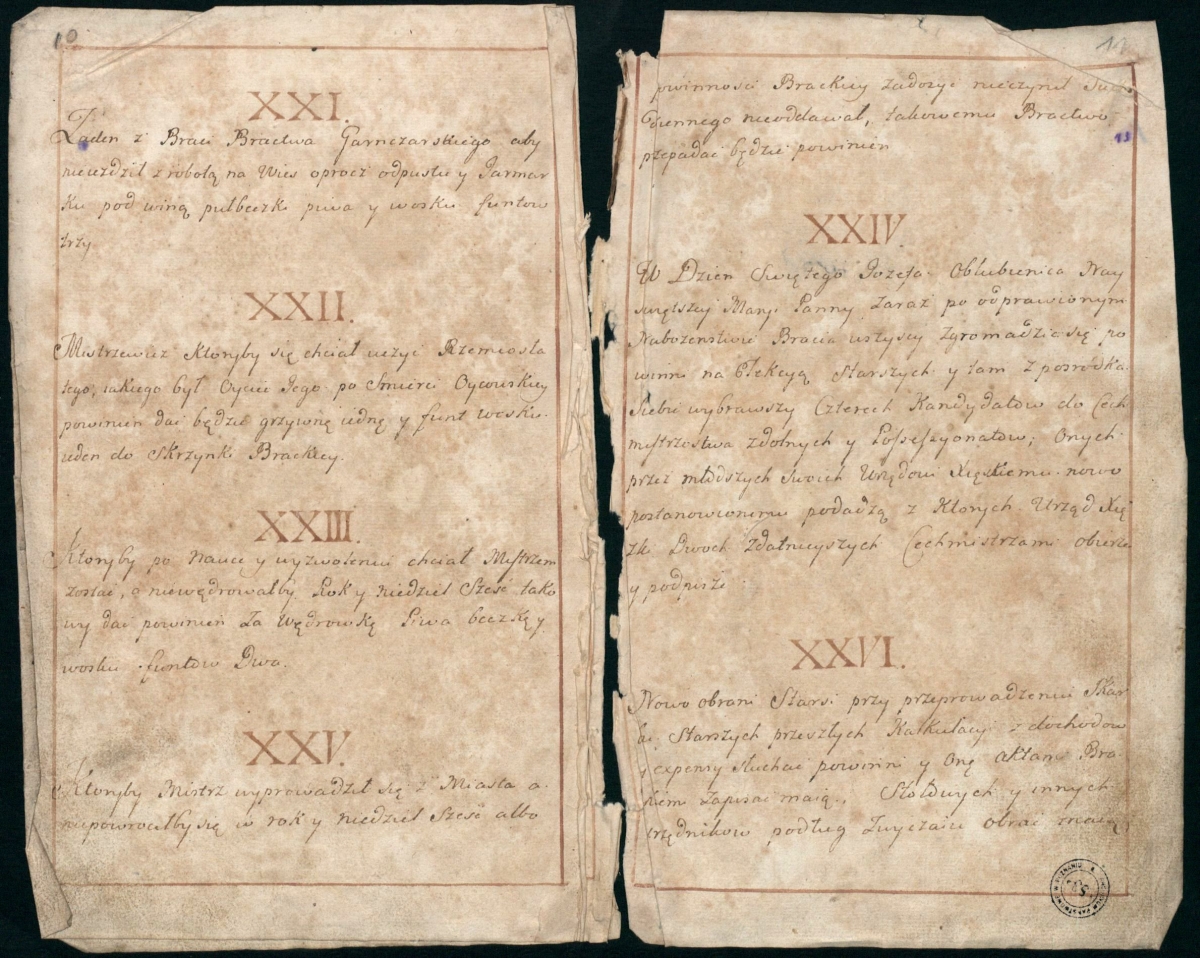 10
XXI.
Żaden z Braci Bractwa Garnczarskiego aby
nieiezdził z robotą na Wies oprocz odpustu y Jarmar
ku pod winą pułbeczki piwa y wosku funtow
trzy
XXII.
Mistrzewicz Ktoryby się chciał uczyc Rzemiosła
tego, iakiego był Oyciec Jego po Smierci Oycowskiey
powinien dać będzie grzywnę iednę y funt wosku
ieden do Skrzynki Brackiey.
XXIII.
Ktoryby po Nauce y wyzwoleniu chciał Mistrzem
zostać, a niewędrowałby Rok y niedziel Sześć tako
wy dać powinien Za Wędrowkę Piwa beczkę y
wosku funtow Dwa.
XXV.
Ktoryby Mistrz wyprowadził się z Miasta a
niepowrociłby się w rok y niedziel Sześć albo
11
powinności Brackiey zadosyć nieczynił Such
dziennego nieoddawał, takowemu Bractwo
przepadać będzie powinien
13
XXIV.
W Dzien Swiętego Jozefa Oblubienica Nay
swiętszey Maryi Panny zaraz po odprawionym
Nabożenstwie Bracia wszyscy zgromadzic się po
winni na Elekcyą Starszych y tam z posrodka
Siebie wybrawszy Czterech Kandydatow do Cech
mistrzostwa zdolnych y Possessyonatow; Onych
przez młodszych swoich Urzędowi Xięskiemu nowo
postanowionemu podadzą z Ktorych Urząd Xię
zki Dwoch Zdatnieyszych Cechmistrzami obierze
y podpisze
XXVI.
Nowo obrani Starsi przy przeprowadzeniu Skar
bu, Starszych przeszłych Kalkulacyi z dochodow
y expensy słuchać powinni y Onę Aktami Bra
ckiemi zapisać maią. Stołowych y innych
urzędnikow podług Zwyczaiu obrać maią